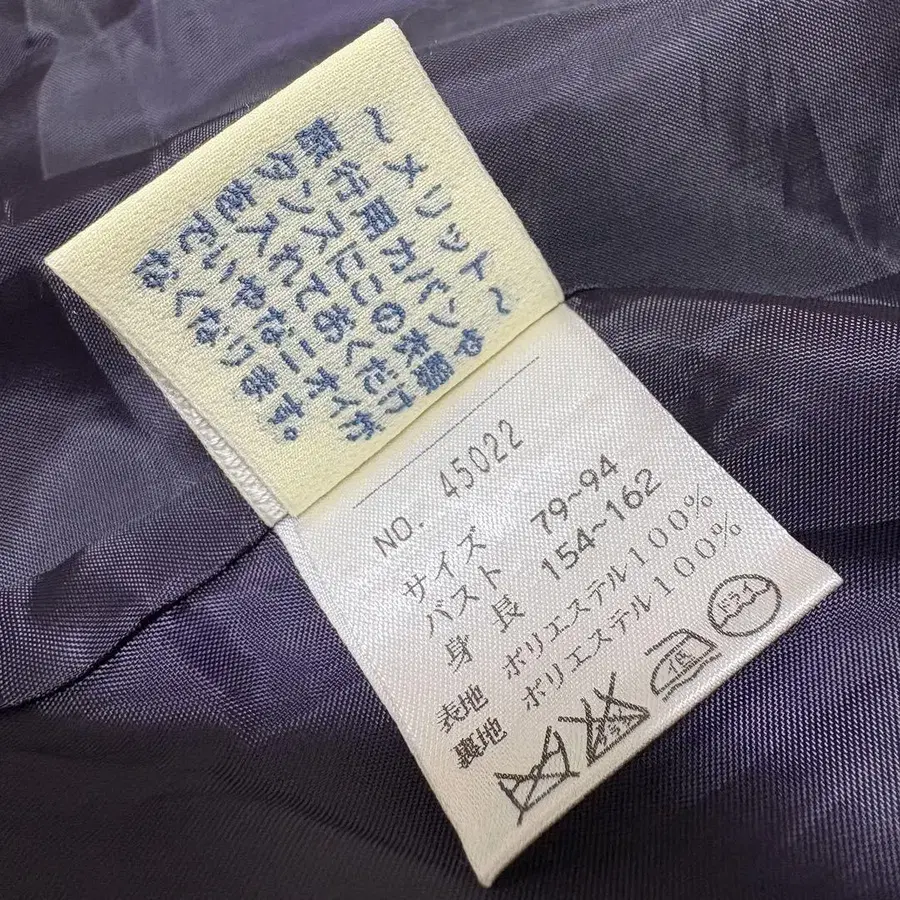 〜メリット〜
旅行用カバンや
タンスにこの
をいれておくだけ
でいやなニオイが
なくなります。
NO. 45022
サイズ
バスト 79~94
身長 154~162
表地 ポリエステル100%
裏地 ポリエステル100%
低 ドライ